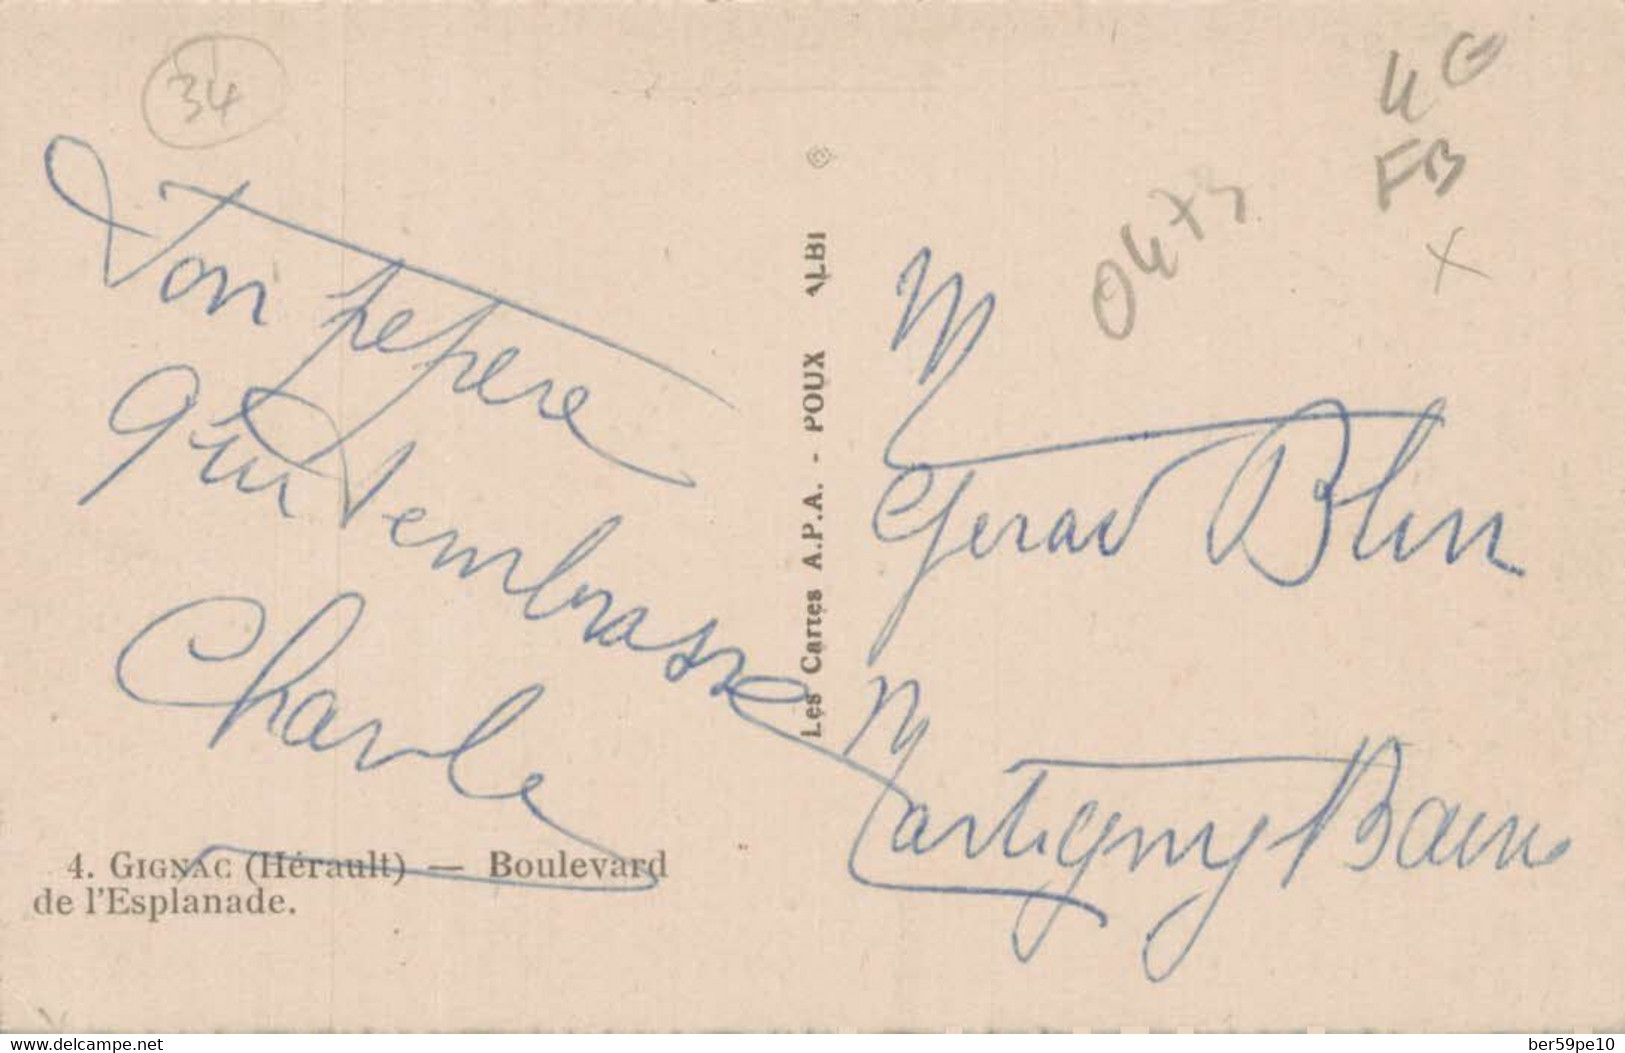 34
Ton pepere
qui t'embrasse
Charle
4. GIGNAC (Hérault) — Boulevard
de l'Esplanade.
Les Cartes A.P.A. - POUX ALBI
4G
FB
X
0473
M
Gerard Blin
Martigny Bains
www.delcampe.net
ber59pe10